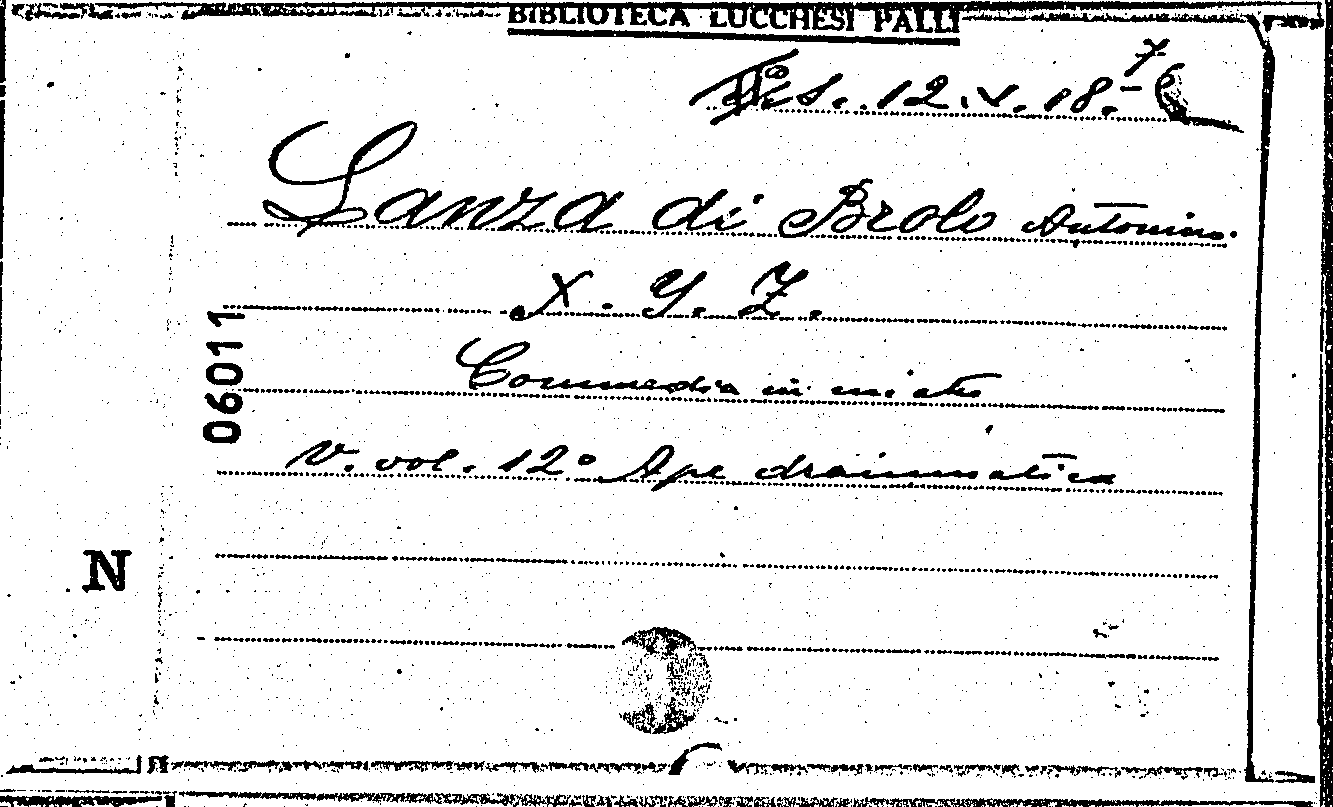 BIBLIOTECA LUCCHESI PALLI
12.V.18.-
7
Lanza di Brolo Antonino.
X. Y. Z.
Commedia in 1 atto
V. vol. 12° Ape drammatica
06011
N